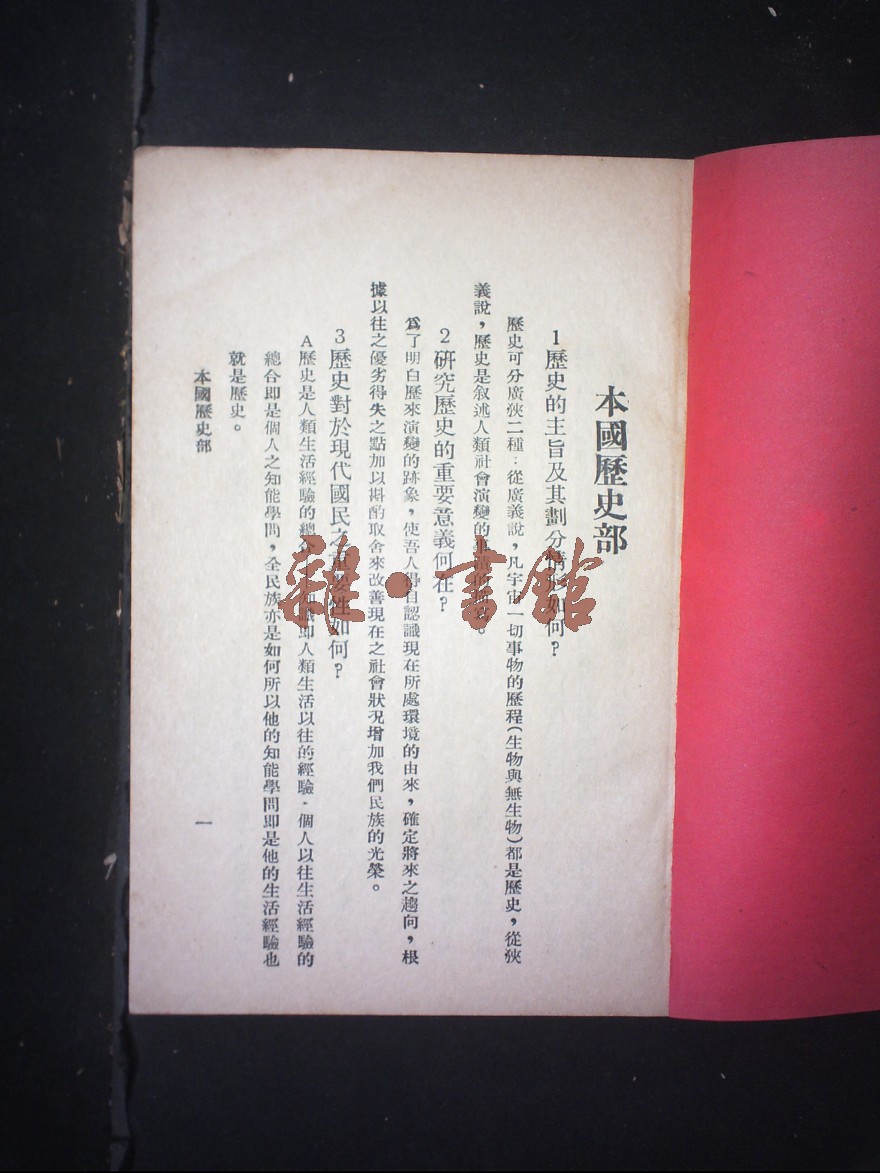 本國歷史部
1歷史的主旨及其劃分情形如何？
歷史可分廣狹二種：從廣義說，凡宇宙一切事物的歷程(生物與無生物)都是歷史，從狹
義說，歷史是叙述人類社會演變的
2研究歷史的重要意義何在？
爲了明白歷來演變的跡象，使吾人得自認識現在所處環境的由來，確定將來之趨向，根
據以往之優劣得失之點加以斟酌取舍來改善現在之社會狀況增加我們民族的光榮。
3歷史對於現代國民之重要性如何？
A歷史是人類生活經驗的總合 知識即人類生活以往的經驗．個人以往生活經驗的
總合即是個人之知能學問，全民族亦是如何所以他的知能學問即是他的生活經驗也
就是歷史。
本國歷史部
一
雜·書館